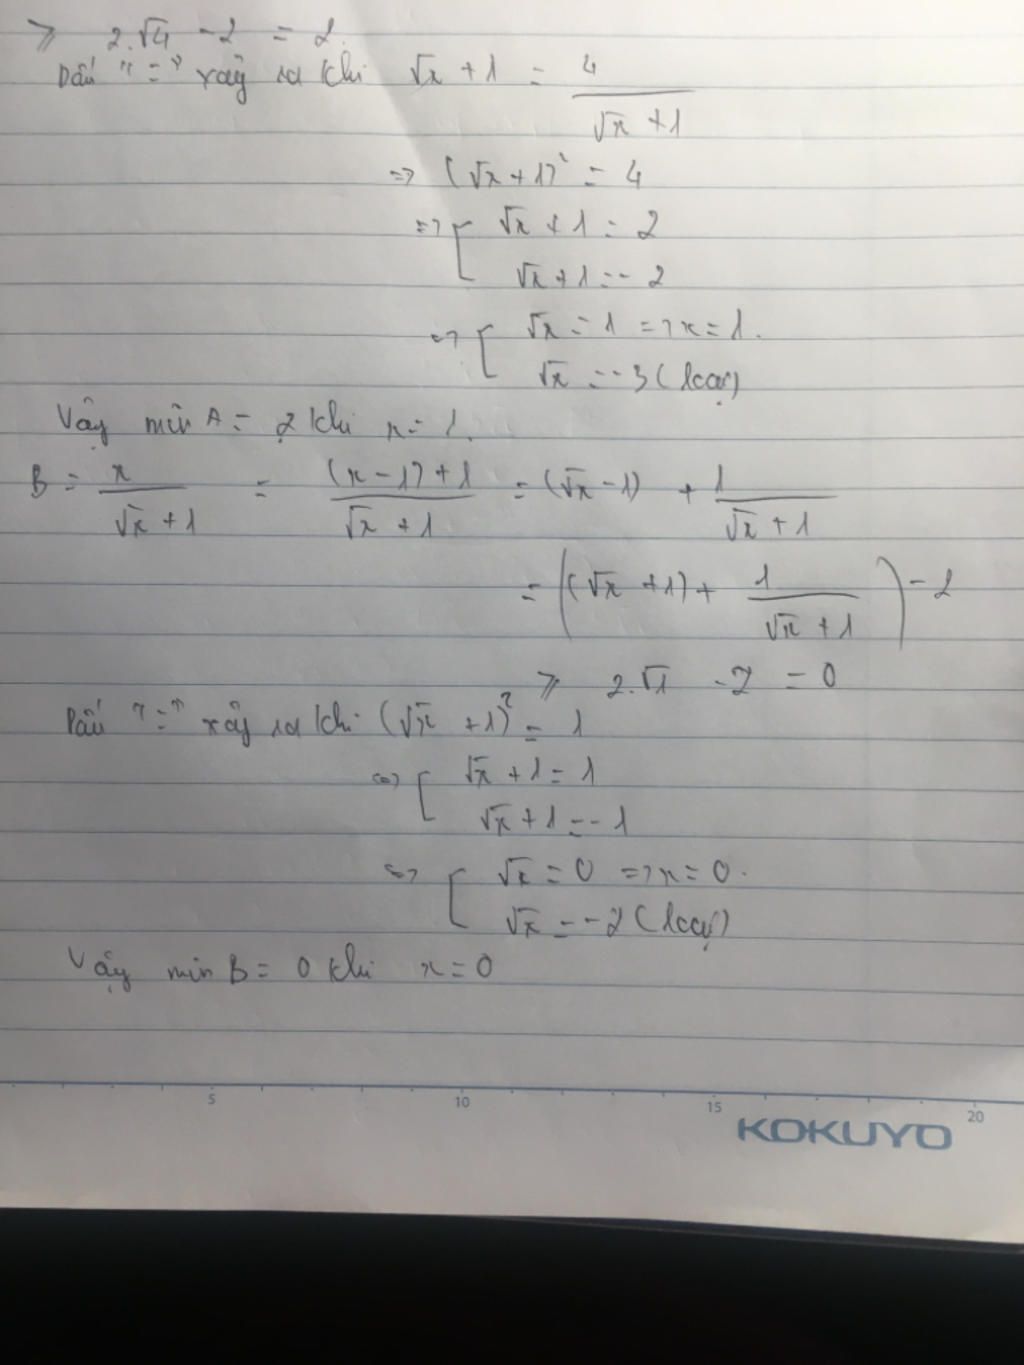 ≥ 2.√4 - 2 = 2.
Dấu "=" xảy ra khi √x + 1 = 4/(√x + 1)
=> (√x + 1)² = 4
=> [ √x + 1 = 2
√x + 1 = -2
=> [ √x = 1 => x = 1.
√x = -3 (loại)
Vậy min A = 2 khi x = 1.
B = x/(√x + 1) = ((x - 1) + 1)/(√x + 1) = (√x - 1) + 1/(√x + 1)
= ((√x + 1) + 1/(√x + 1)) - 2
≥ 2.√1 - 2 = 0
Dấu "=" xảy ra khi (√x + 1)² = 1
<=> [ √x + 1 = 1
√x + 1 = -1
<=> [ √x = 0 => x = 0.
√x = -2 (loại)
Vậy min B = 0 khi x = 0
5 10 15 20
KOKUYO